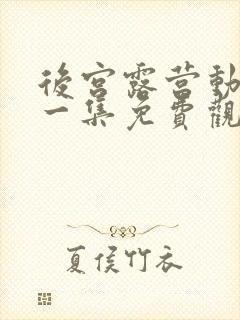 後宮露营動
一集免費觀
夏侯竹衣